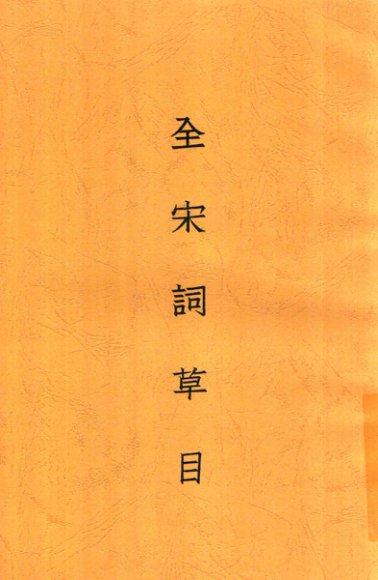 全宋詞草目